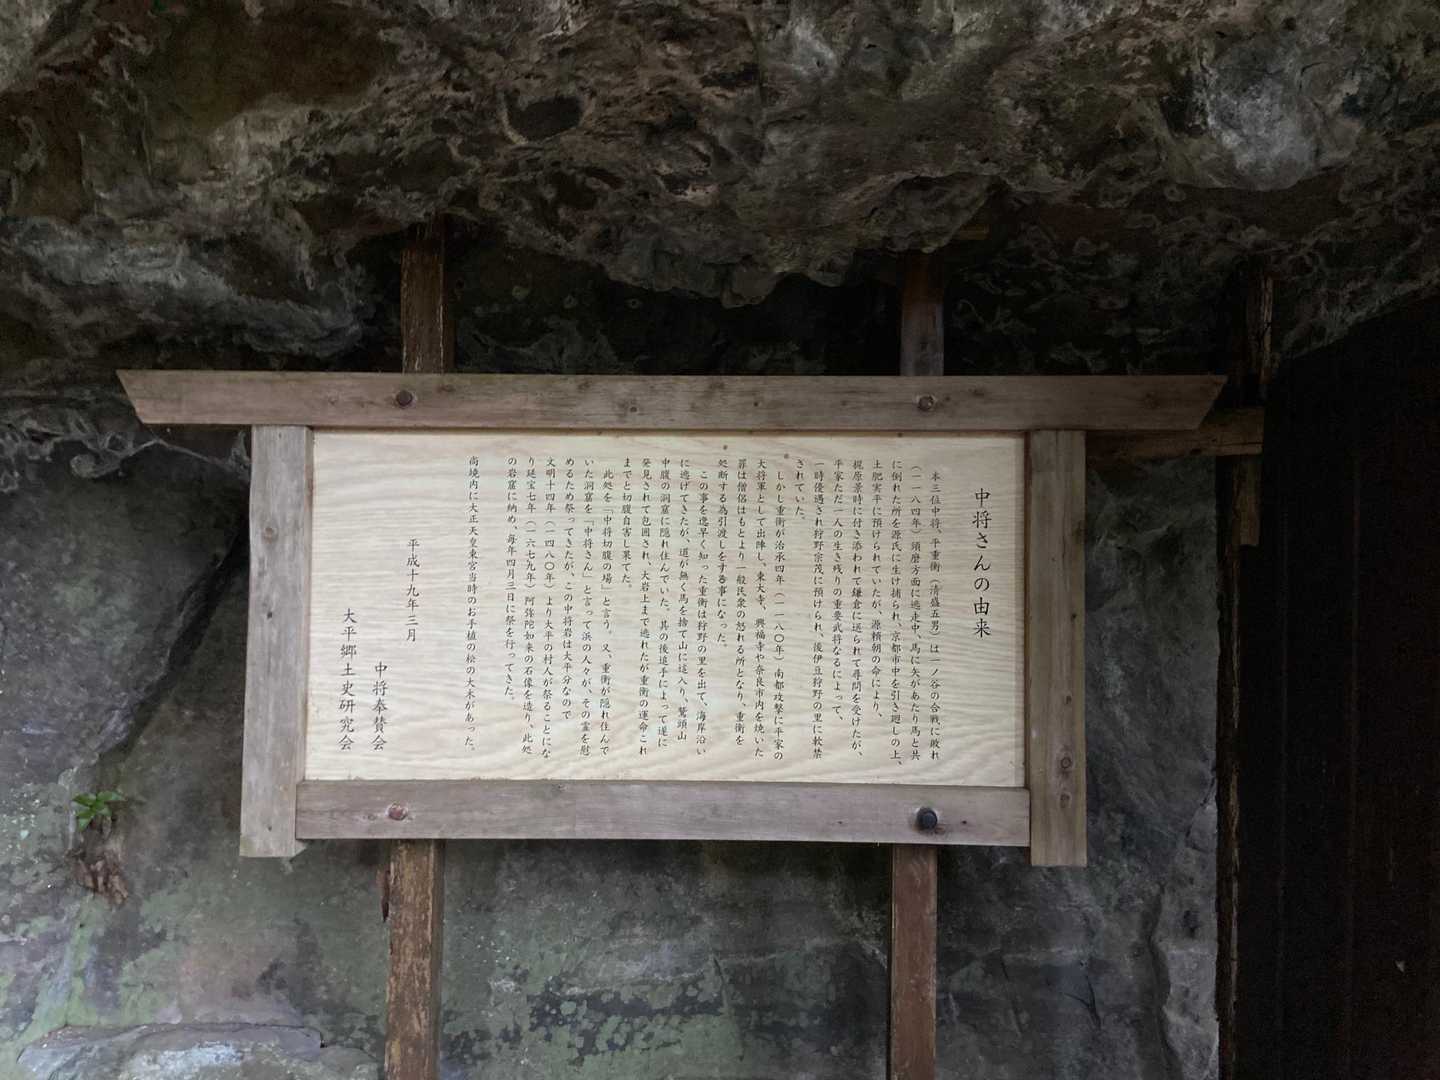 中将さんの由来
本三位中将、平重衡（清盛五男）は一ノ谷の合戦に敗れ
（一一八四年）須磨方面に逃走中、馬に矢があたり馬と共
に倒れた所を源氏に生け捕られ、京都市中を引き廻しの上、
土肥実平に預けられていたが、源頼朝の命により、
梶原景時に付き添われて鎌倉に送られて尋問を受けたが、
平家ただ一人の生き残りの重要武将なるによって、
一時優遇され狩野宗茂に預けられ、後伊豆狩野の里に軟禁
されていた。
しかし重衡が治承四年（一一八〇年）南都攻撃に平家の
大将軍として出陣し、東大寺、興福寺や奈良市内を焼いた
罪は僧侶はもとより一般民衆の怒れる所となり、重衡を
処断する為引渡しをする事になった。
この事を逸早く知った重衡は狩野の里を出て、海岸沿い
に逃げてきたが、道が無く馬を捨て山に迷入り、鷲頭山
中腹の洞窟に隠れ住んでいた。其の後追手によって遂に
発見されて包囲され、大岩上まで逃れたが重衡の運命これ
までと切腹自害し果てた。
此処を「中将切腹の場」と言う。又、重衡が隠れ住んで
いた洞窟を「中将さん」と言って浜の人々が、その霊を慰
めるため祭ってきたが、この中将岩は大平分なので
文明十四年（一四八〇年）より大平の村人が祭ることにな
り延宝七年（一六七九年）阿弥陀如来の石像を造り、此処
の岩窟に納め、毎年四月三日に祭を行ってきた。
尚境内に大正天皇東宮当時のお手植の松の大木があった。
平成十九年三月
中将奉賛会
大平郷土史研究会